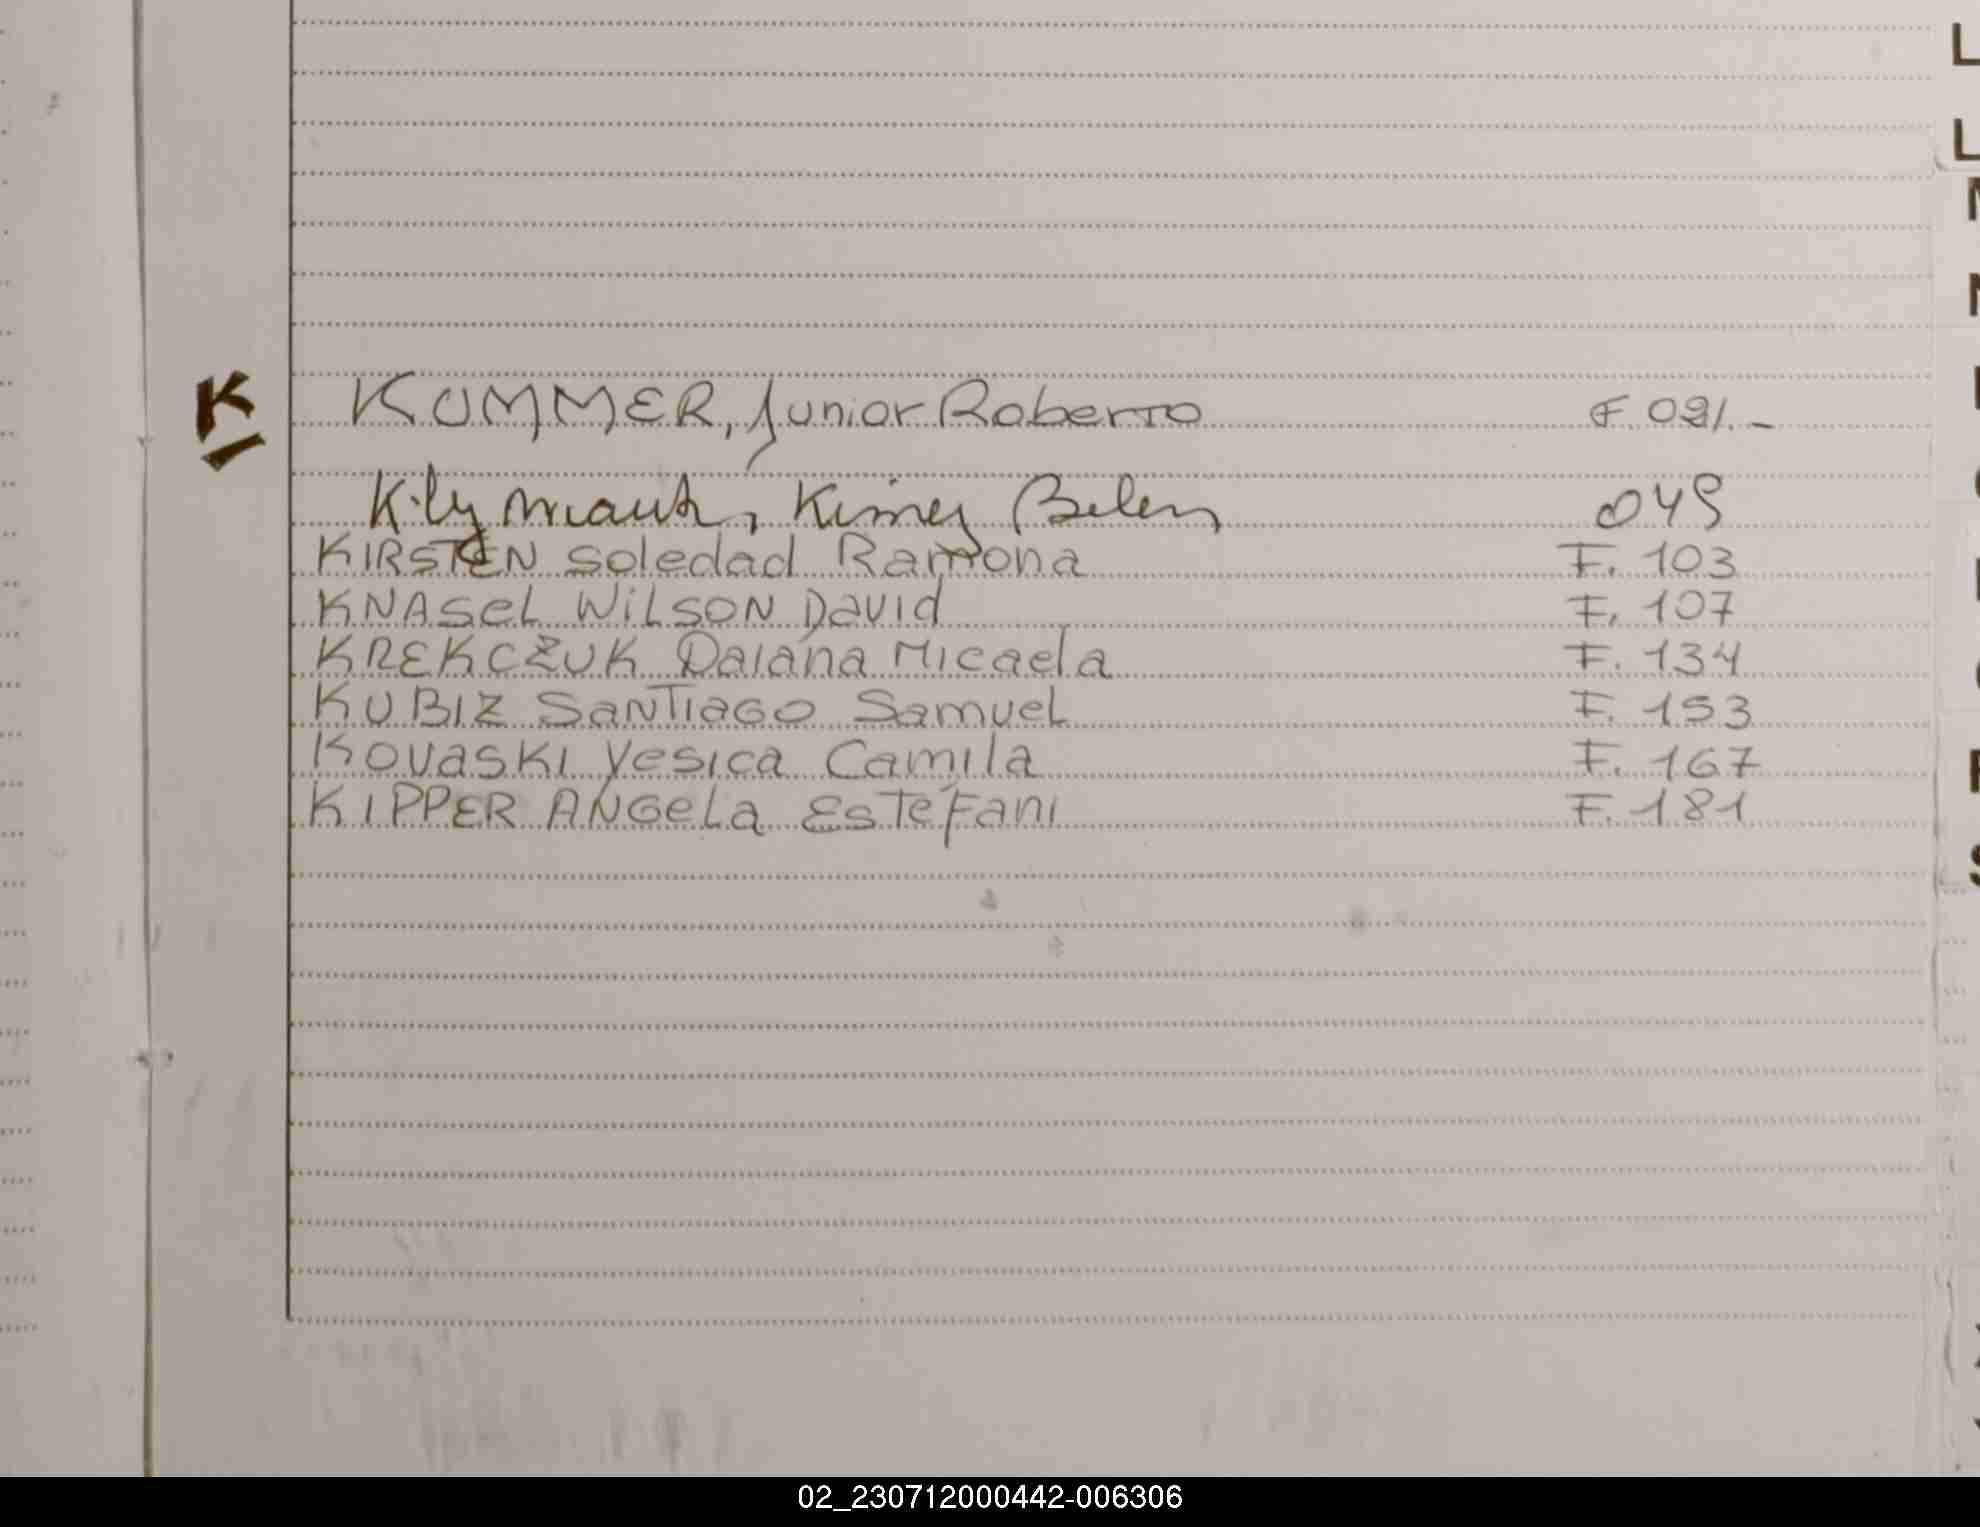 K
KUMMER, Junior Roberto F 021.-
Kimey Belen 049
KIRSTEN Soledad Ramona F. 103
KNASEL WILSON DAVID F. 107
KREKCZUK Daiana Micaela F. 134
KUBIZ SANTIAGO Samuel F. 153
KOVASKI Yesica Camila F. 167
KIPPER ANGELA ESTEFANI F. 181
L
L
02_230712000442-006306